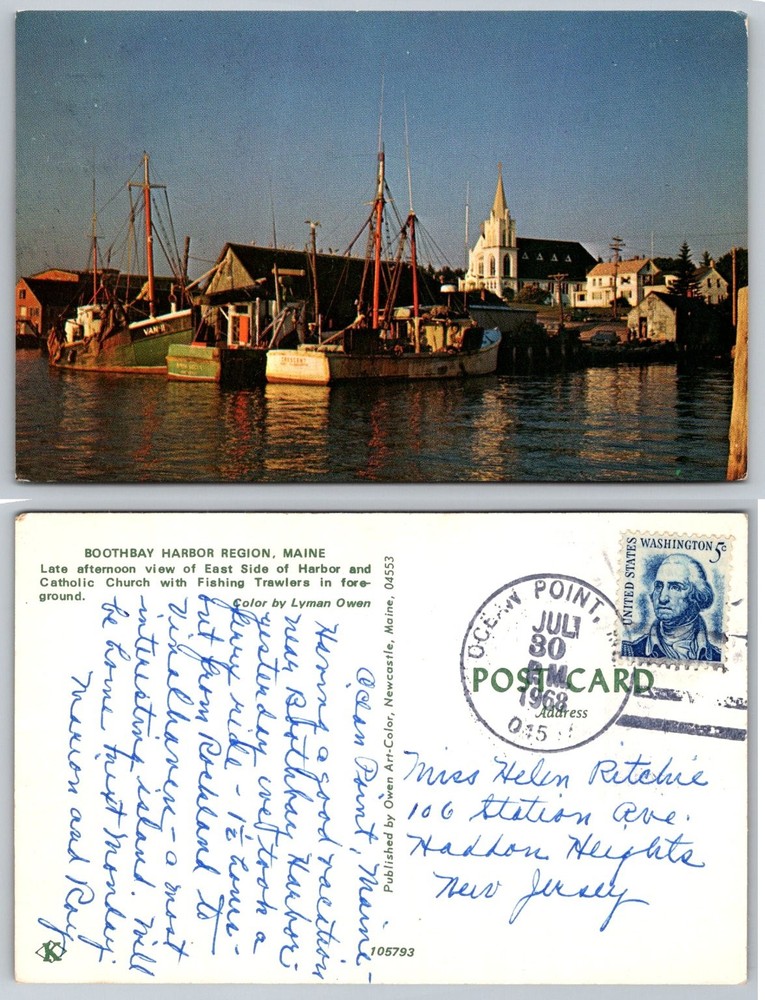 VAN-II
CRESCENT
BOOTHBAY HARBOR REGION, MAINE
Late afternoon view of East Side of Harbor and
Catholic Church with Fishing Trawlers in fore-
ground.
Color by Lyman Owen
Ocean Point, Maine -
Having a good vacation
near Boothbay Harbor.
Yesterday we took a
ferry ride - 1½ hours -
out from Rockland to
Vinalhaven - a most
interesting island. Will
be home next Monday.
Marion and Roy
Published by Owen Art-Color, Newcastle, Maine, 04553
K
105793
OCEAN POINT,
JUL
30
PM
1968
045
UNITED STATES
WASHINGTON 5c
POST CARD
Address
Miss Helen Ritchie
106 Station Ave.
Haddon Heights
New Jersey